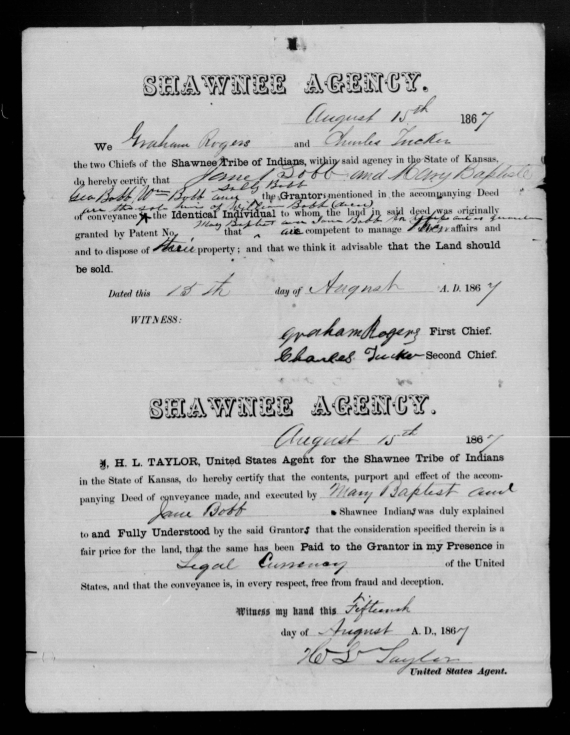 SHAWNEE AGENCY.
August 15th 1867
We Graham Rogers and Charles Tucker
the two Chiefs of the Shawnee Tribe of Indians, within said agency in the State of Kansas,
do hereby certify that Jane Bobb and Mary Baptiste
Geo Bobb, Wm Bobb and Sally Bobb the Grantors mentioned in the accompanying Deed
are the sole heirs of William Bobb
of conveyance the Identical Individual to whom the land in said deed was originally
Mary Baptist and Jane Bobb
granted by Patent No. that are competent to manage their affairs and
and to dispose of their property; and that we think it advisable that the Land should
be sold.
Dated this 15th day of August A. D. 1867
WITNESS:
Graham Rogers First Chief.
Charles Tucker Second Chief.
SHAWNEE AGENCY.
August 15th 1867
I, H. L. TAYLOR, United States Agent for the Shawnee Tribe of Indians
in the State of Kansas, do hereby certify that the contents, purport and effect of the accom-
panying Deed of conveyance made, and executed by Mary Baptist and
Jane Bobb Shawnee Indians was duly explained
to and Fully Understood by the said Grantors that the consideration specified therein is a
fair price for the land, that the same has been Paid to the Grantor in my Presence in
Legal Currency of the United
States, and that the conveyance is, in every respect, free from fraud and deception.
Witness my hand this Fifteenth
day of August A. D., 1867
H L Taylor
United States Agent.